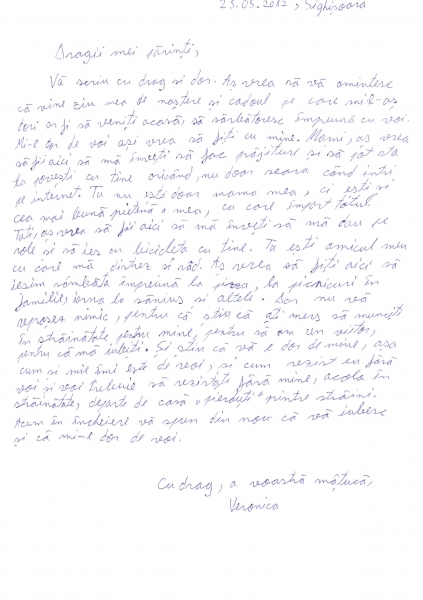 23.05.2012, Sighișoara
Dragii mei părinți,
Vă scriu cu drag și dor. Aș vrea să vă amintesc
că vine ziua mea de naștere și cadoul pe care mi l-aș
dori ar fi să veniți acasă, să sărbătoresc împreună cu voi.
Mi-e dor de voi ași vrea să fiți cu mine. Mami, aș vrea
să fii aici să mă înveți să fac prăjituri și să pot sta
la povești cu tine oricând, nu doar seara când intri
pe internet. Tu nu ești doar mama mea, ci ești și
cea mai bună prietenă a mea, cu care împart totul.
Tati, aș vrea să fii aici să mă înveți să mă dau pe
role și să ies cu bicicleta cu tine. Tu ești amicul meu
cu care mă distrez și râd. Aș vrea să fiți aici să
ieșim sâmbăta împreună la pizza, la picnicuri în
familie, iarna la săniuș și altele. Dar nu vă
reproșez nimic, pentru că știu că ați mers să munciți
în străinătate pentru mine, pentru să am un viitor,
pentru că mă iubiți. Și știu că vă e dor de mine, așa
cum și mie îmi este de voi, și cum rezist eu fără
voi și voi trebuie să rezistați fără mine, acolo în
străinătate, departe de casă „pierduți" printre străini.
Acum în încheiere vă spun din nou că vă iubesc
și că mi-e dor de voi.
Cu drag, a voastră mățucă,
Veronica